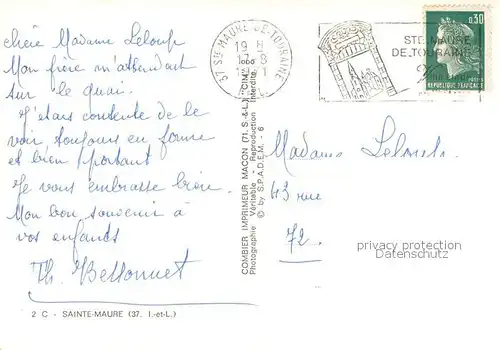 chère Madame Leloup
Mon frère m'attendait
sur le quai.
J'étais contente de le
voir toujours en forme
et bien portant
Je vous embrasse bien.
Mon bon souvenir à
vos enfants
Th. Bessonnet
2 C - SAINTE-MAURE (37. I.-et-L.)
COMBIER IMPRIMEUR MACON (71. S.-&-L.) "CIM"
Photographie Véritable - Reproduction Interdite
© by S.P.A.D.E.M. - 6
37 STE MAURE DE TOURAINE
19 H
17 - 9
STE. MAURE
DE TOURAINE
0,30
REPUBLIQUE FRANÇAISE
Madame
43 rue
72.
privacy protection
Datenschutz